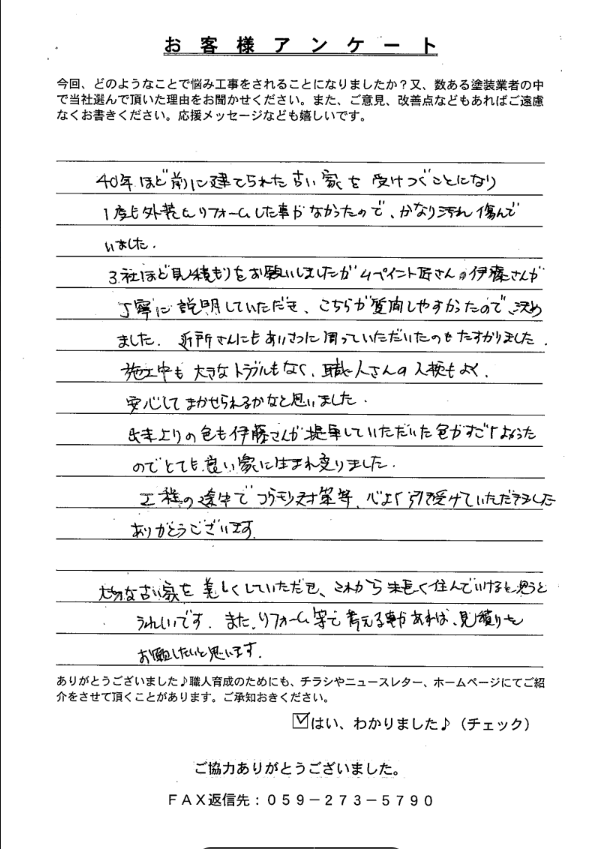 お客様アンケート
今回、どのようなことで悩み工事をされることになりましたか？又、数ある塗装業者の中
で当社選んで頂いた理由をお聞かせください。また、ご意見、改善点などもあればご遠慮
なくお書きください。応援メッセージなども嬉しいです。
40年ほど前に建てられた古い家を受けつぐことになり
1度も外装もリフォームした事がなかったので、かなり汚れ傷んで
いました。
3社ほど見積もりをお願いしましたが 4ペイント匠さんの伊藤さんが
丁寧に説明していただき、こちらが質問しやすかったので、決め
ました。近所さんにもあいさつに回っていただいたのもたすかりました。
施工中も大きなトラブルもなく、職人さんの人柄もよく、
安心してまかせられるかなと思いました。
出来上りの色も伊藤さんが提案していただいた色がすごくよかった
のでとても良い家に生まれ変りました。
工程の途中で つらら対策等、心よく引き受けていただきました
ありがとうございます
大切な古い家を美しくしていただき、これから末長く住んでいけると思うと
うれしいです。また、リフォーム等で考える事があれば、見積りを
お願いしたいと思います。
ありがとうございました♪職人育成のためにも、チラシやニュースレター、ホームページにてご紹
介をさせて頂くことがあります。ご承知おきください。
☑はい、わかりました♪（チェック）
ご協力ありがとうございました。
ＦＡＸ返信先：０５９－２７３－５７９０